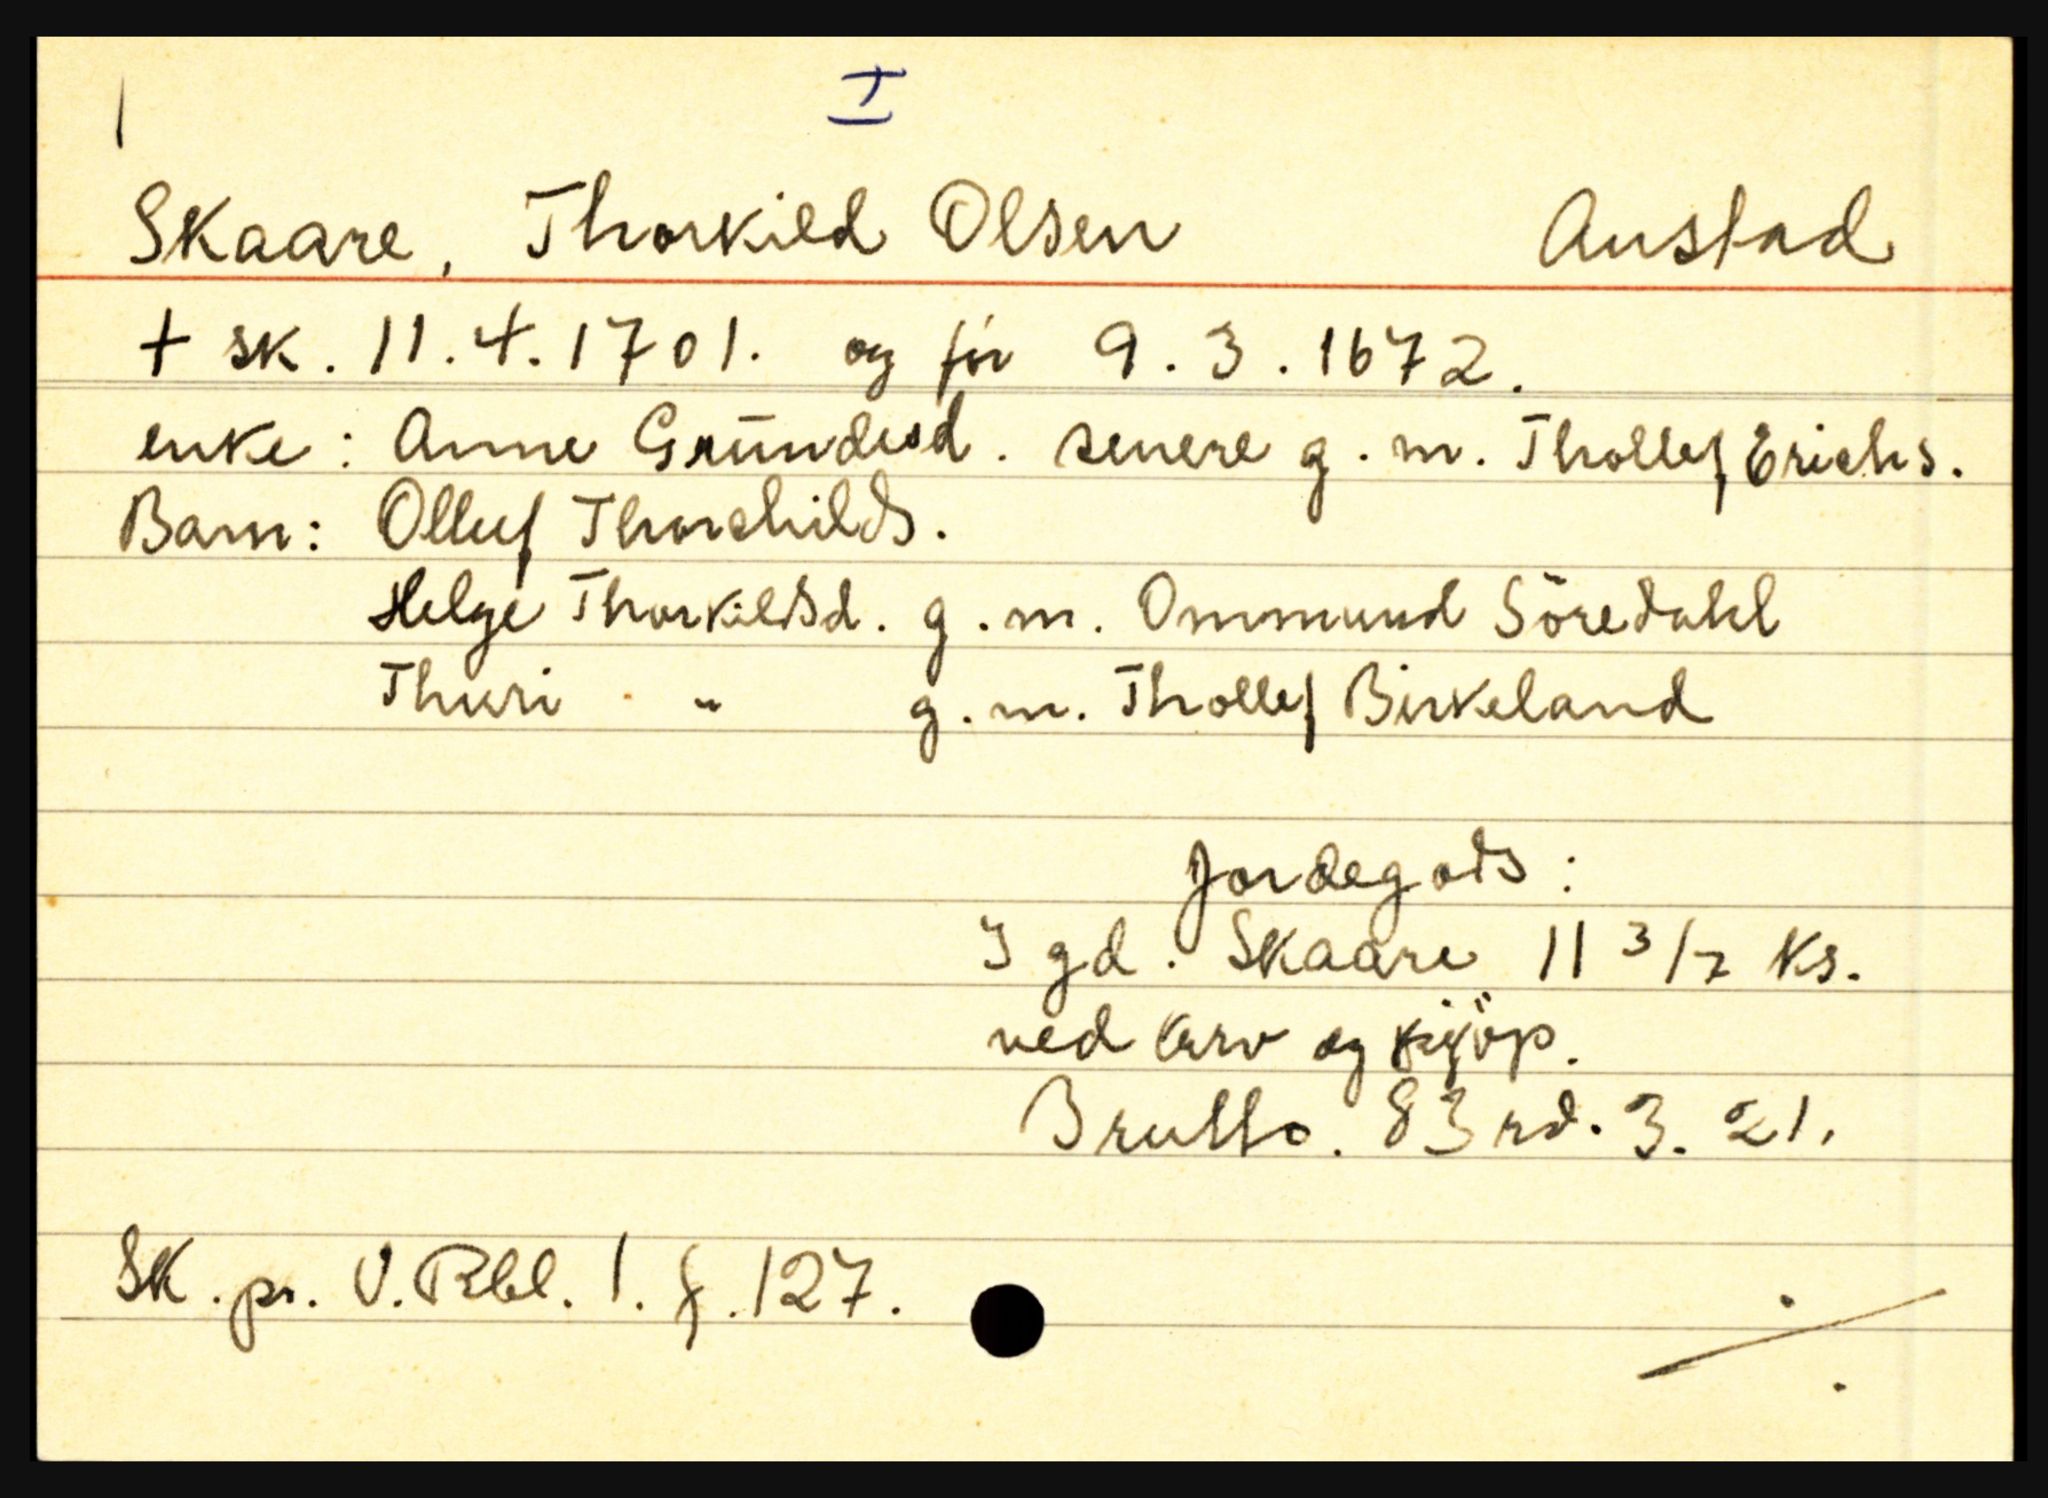 I
Skaare, Thorkild Olsen Austad
+ sk. 11.4.1701. og før 9.3.1672.
enke: Anne Grundesd. senere g.m. Thollef Erichs.
Barn: Olluf Thorchilds.
Helge Thorkildsd. g.m. Ommund Söredahl
Thuri " g.m. Thollef Birkeland
Jordegods:
I gd. Skaare 11 3/7 Ks.
ved arv og kjöp.
Brutto. 83 rd. 3. 21.
SK. pr. V. Rbl. 1. f. 127.